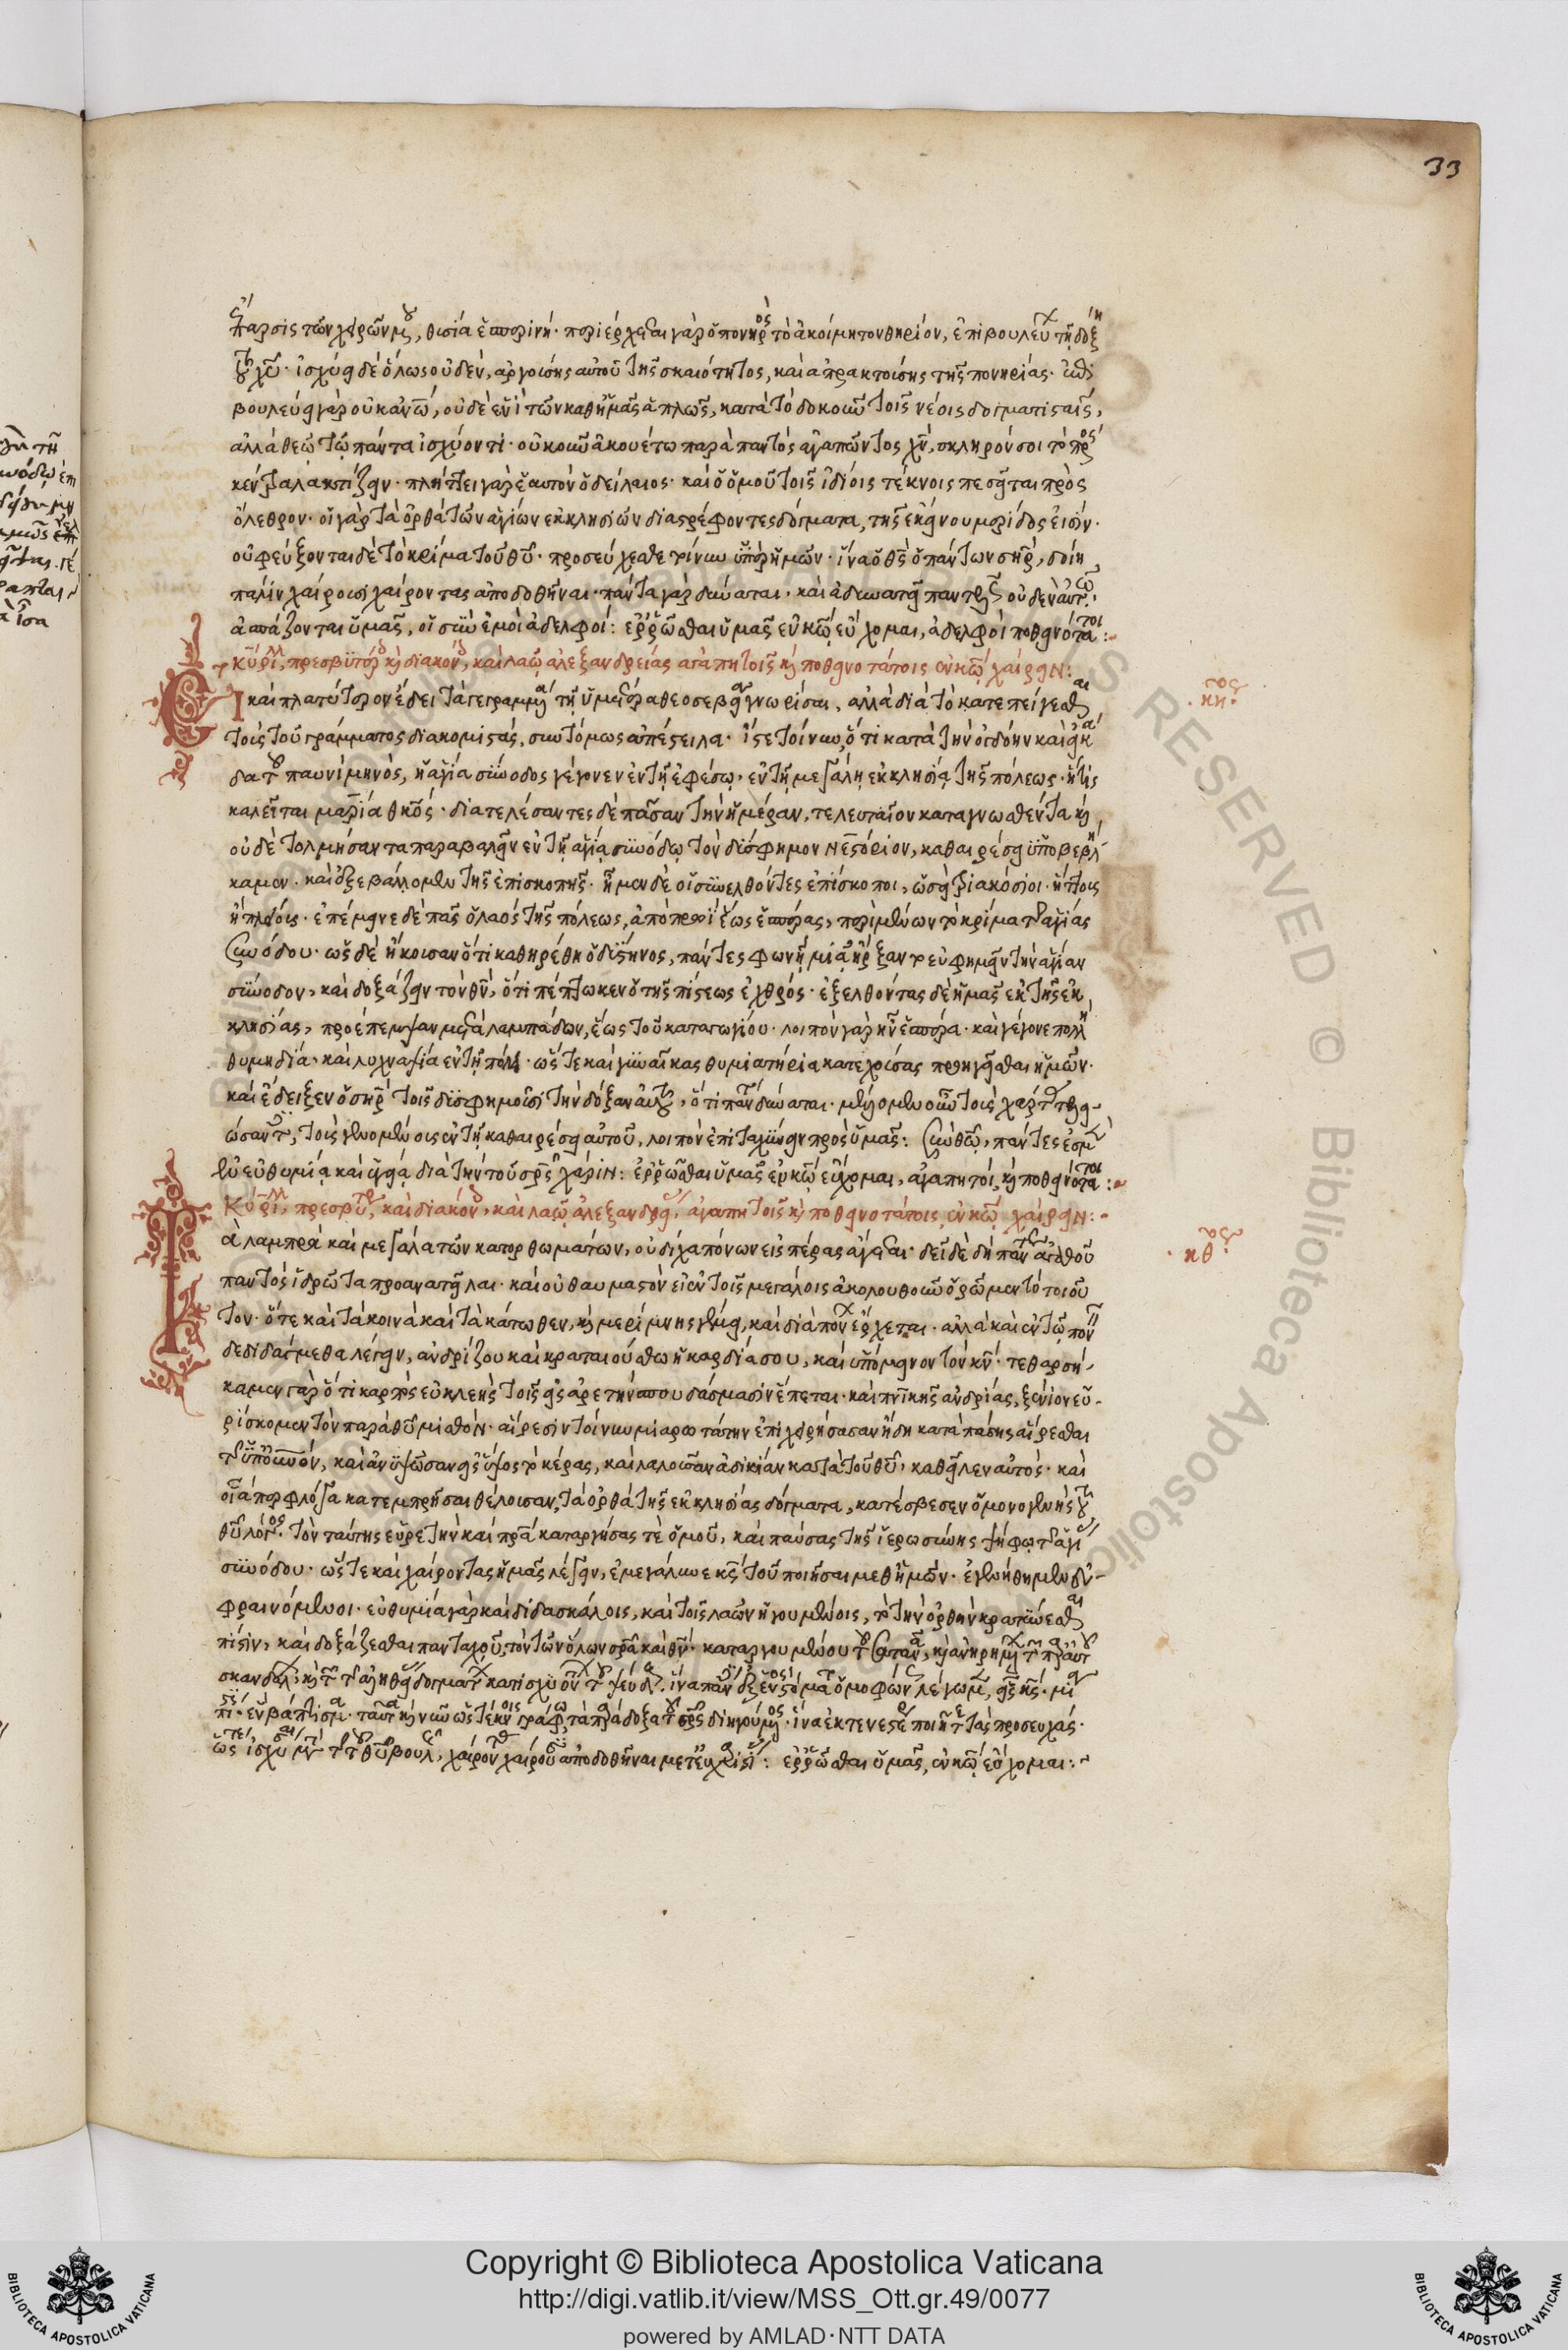 33
ἔπαρσις τῶν χειρῶν μου, θυσία ἑσπερινή· περιέρχεται γὰρ ὁ πονηρὸς τὸ ἀκοίμητον θηρίον, ἐπιβουλεύει τῇ δόξῃ
τοῦ χυ· ἰσχύει δὲ ὅλως οὐδέν, ἀργούσης αὐτοῦ τῆς σκαιότητος, καὶ ἀπρακτούσης τῆς πονηρίας· ἐπι
βουλεύει γὰρ οὐκ ἀνῶ, οὐδὲ ἑνὶ τῶν καθ' ἡμᾶς ἁπλῶς, κατὰ τὸ δοκοῦν τοῖς νέοις δογματισταῖς,
ἀλλὰ θεῷ τῷ πάντα ἰσχύοντι· οὐκοῦν ἀκουέτω παρὰ παντὸς ἀγαπῶντος χν, σκληρόν σοι τὸ πρὸς
κέντρα λακτίζειν· πλήττει γὰρ ἑαυτὸν ὁ δείλαιος· καὶ ὁμοῦ τοῖς ἰδίοις τέκνοις πεσεῖται πρὸς
ὄλεθρον· οἱ γὰρ τὰ ὀρθὰ τῶν ἁγίων ἐκκλησιῶν διαστρέφοντες δόγματα, τῆς ἐκείνου μερίδος εἰσίν·
οὐ φεύξονται δὲ τὸ κρίμα τοῦ θυ· προσεύχεσθε τοίνυν ὑπὲρ ἡμῶν· ἵνα ὁ θς ὁ πάντων σηρ, δοίη
πάλιν χαίρουσι χαίροντας ἀποδοθῆναι· πάντα γὰρ δύναται, καὶ ἀδυνατεῖ παντελῶς οὐδὲν αὐτῷ·
ἀσπάζονται ὑμᾶς, οἱ σὺν ἐμοὶ ἀδελφοί: ἐρρῶσθαι ὑμᾶς ἐν κῷ εὔχομαι, ἀδελφοὶ ποθεινότατοι:
Κύριλλ, πρεσβυτέρ κὶ διακόν, καὶ λαῷ ἀλεξανδρείας ἀγαπητοῖς κὶ ποθεινοτάτοις ἐν κῷ χαίρειν:
κη
Εἰ καὶ πλατύτερον ἔδει τὰ γεγραμμένα τῇ ὑμετέρᾳ θεοσεβείᾳ γνωρίσαι, ἀλλὰ διὰ τὸ κατεπείγεσθαι
τοὺς τοῦ γράμματος διακομιστάς, συντόμως ἀπέστειλα· ἴστε τοίνυν, ὅτι κατὰ τὴν ὀγδόην καὶ εἰκά
δα τοῦ παυνὶ μηνός, ἡ ἁγία σύνοδος γέγονεν ἐν τῇ ἐφέσῳ, ἐν τῇ μεγάλῃ ἐκκλησίᾳ τῆς πόλεως· ἥτις
καλεῖται μαρία θκος· διατελέσαντες δὲ πᾶσαν τὴν ἡμέραν, τελευταῖον καταγνωσθέντα κὶ
οὐδὲ τολμήσαντα παραβαλεῖν ἐν τῇ ἁγίᾳ συνόδῳ τὸν δύσφημον νεστόριον, καθαιρέσει ὑποβεβλή
καμεν· καὶ ἐξεβάλλομεν τῆς ἐπισκοπῆς· ἦμεν δὲ οἱ συνελθόντες ἐπίσκοποι, ὡσεὶ διακόσιοι· ἥττους
ἢ πλείους· ἐπέμεινε δὲ πᾶς ὁ λαὸς τῆς πόλεως, ἀπὸ πρωὶ ἕως ἑσπέρας, περιμένων τὸ κρίμα τῆς ἁγίας
συνόδου· ὡς δὲ ἤκουσαν ὅτι καθηρέθη ὁ δύστηνος, πάντες φωνῇ μιᾷ ἤρξαντο εὐφημεῖν τὴν ἁγίαν
σύνοδον, καὶ δοξάζειν τὸν θν, ὅτι πέπτωκεν ὁ τῆς πίστεως ἐχθρός· ἐξελθόντας δὲ ἡμᾶς ἐκ τῆς ἐκ
κλησίας, προέπεμψαν μετὰ λαμπάδων, ἕως τοῦ καταγωγίου· λοιπὸν γὰρ ἦν ἑσπέρα· καὶ γέγονε πολλὴ
θυμηδία· καὶ λυχναψία ἐν τῇ πόλει· ὥστε καὶ γυναῖκας θυμιατήρια κατεχούσας προηγεῖσθαι ἡμῶν·
καὶ ἔδειξεν ὁ σηρ τοῖς δυσφημοῦσι τὴν δόξαν αὐτοῦ, ὅτι πάντα δύναται· μέλλομεν οὖν τοὺς χάρτας τελει
ώσαντες, τοὺς γενομένους ἐν τῇ καθαιρέσει αὐτοῦ, λοιπὸν ἐπιταχύνειν πρὸς ὑμᾶς: σὺν θῷ, πάντες ἐσμὲν
ἐν εὐθυμίᾳ καὶ ὑγείᾳ διὰ τὴν τοῦ σρς χάριν: ἐρρῶσθαι ὑμᾶς ἐν κῷ εὔχομαι, ἀγαπητοί, κὶ ποθεινότατοι:
Κύριλλ, πρεσβυτ, καὶ διακόν, καὶ λαῷ ἀλεξανδρείας, ἀγαπητοῖς κὶ ποθεινοτάτοις ἐν κῷ χαίρειν:
κθ
Τὰ λαμπρὰ καὶ μεγάλα τῶν κατορθωμάτων, οὐ δίχα πόνων εἰς πέρας ἄγεται· δεῖ δὲ δὴ πάντως ἀγαθοῦ
παντὸς ἱδρῶτα προανατεῖλαι· καὶ οὐ θαυμαστὸν εἰ ἐν τοῖς μεγάλοις ἀκολουθοῦν ὁρῶμεν τὸ τοιοῦ
τον· ὅτε καὶ τὰ κοινὰ καὶ τὰ κάτωθεν, κὶ μερίμνης γέμει, καὶ διὰ πόνων ἔρχεται· ἀλλὰ καὶ ἐν τῷ πονεῖν
δεδιδάγμεθα λέγειν, ἀνδρίζου καὶ κραταιούσθω ἡ καρδία σου, καὶ ὑπόμεινον τὸν κν· τεθαρσή
καμεν γὰρ ὅτι καρπὸς εὐκλεὴς τοῖς εἰς ἀρετὴν σπουδάσμασιν ἕπεται· καὶ πνικῆς ἀνδρίας, ξένιον εὑ
ρίσκομεν τὸν παρὰ θυ μισθόν· αἵρεσιν τοίνυν μιαρωτάτην ἐπιχειρήσασαν ἤδη κατὰ πάσης αἴρεσθαι
τῆς ὑπ' οὐρανόν, καὶ ἀνυψώσαν εἰς ὕψος τὸ κέρας, καὶ λαλοῦσαν ἀδικίαν κατὰ τοῦ θυ, καθεῖλεν αὐτός· καὶ
οἷά περ φλόγα κατεμπρῆσαι θέλουσαν, τὰ ὀρθὰ τῆς ἐκκλησίας δόγματα, κατέσβεσεν ὁ μονογενὴς τοῦ
θυ λόγος· τὸν ταύτης εὑρετὴν καὶ πρα καταργήσας τὲ ὁμοῦ, καὶ παύσας τῆς ἱερωσύνης ψήφῳ τῆς ἁγίας
συνόδου· ὥστε καὶ χαίροντας ἡμᾶς λέγειν, ἐμεγάλυνε κς τοῦ ποιῆσαι μεθ' ἡμῶν· ἐγενήθημεν εὐ
φραινόμενοι· εὐθυμία γὰρ καὶ διδασκάλοις, καὶ τοῖς λαῶν ἡγουμένοις, τὸ τὴν ὀρθὴν κρατύνεσθαι
πίστιν, καὶ δοξάζεσθαι πανταχοῦ, τὸν τῶν ὅλων σρα καὶ θν· καταργουμένου τοῦ σατανᾶ, κὶ ἀνῃρημένων τῶν παρ' αὐτοῦ
σκανδάλων, κὶ τῶν τῆς ἀληθείας δογμάτων κατισχυόντων τοῦ ψεύδους, ἵνα πάντες ἐξ ἑνὸς στόματος ὁμοφώνως λέγωμεν, εἷς κς· μία
πίστις· ἓν βάπτισμα· ταῦτα κὶ νῦν ὡς τέκνοις γράφω, τὰ παράδοξα τοῦ σρς διηγούμενος· ἵνα ἐκτενεστέρας ποιῆτε τὰς προσευχάς·
ὥστε ἰσχύσαντας τῇ τοῦ θυ βουλῇ, χαίροντας χαίρουσιν ἀποδοθῆναι μετ' εὐχαριστίας: ἐρρῶσθαι ὑμᾶς, ἐν κῷ εὔχομαι:
Copyright © Biblioteca Apostolica Vaticana
http://digi.vatlib.it/view/MSS_Ott.gr.49/0077
powered by AMLAD·NTT DATA
BIBLIOTECA APOSTOLICA VATICANA
BIBLIOTECA APOSTOLICA VATICANA